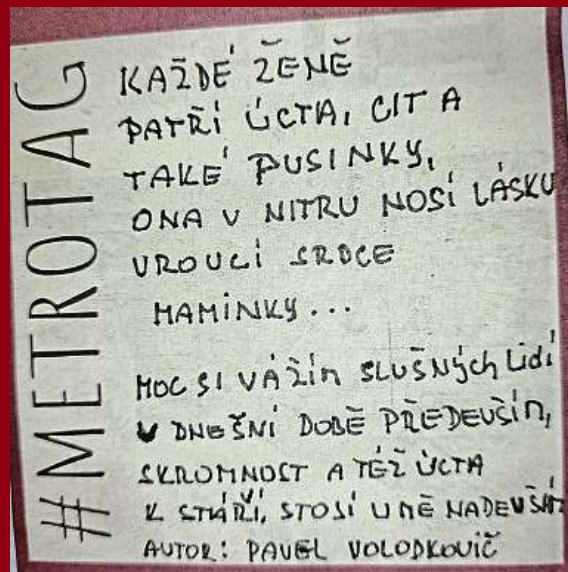 #METROTAG
KAŽDÉ ŽENĚ
PATŘÍ ÚCTA, CIT A
TAKÉ PUSINKY,
ONA V NITRU NOSÍ LÁSKU
VROUCÍ SRDCE
MAMINKY...
MOC SI VÁŽÍM SLUŠNÝCH LIDÍ
V DNEŠNÍ DOBĚ PŘEDEVŠÍM,
SKROMNOST A TÉŽ ÚCTA
K STÁŘÍ, STOJÍ U MĚ
AUTOR: PAVEL VOLODKOVIČ